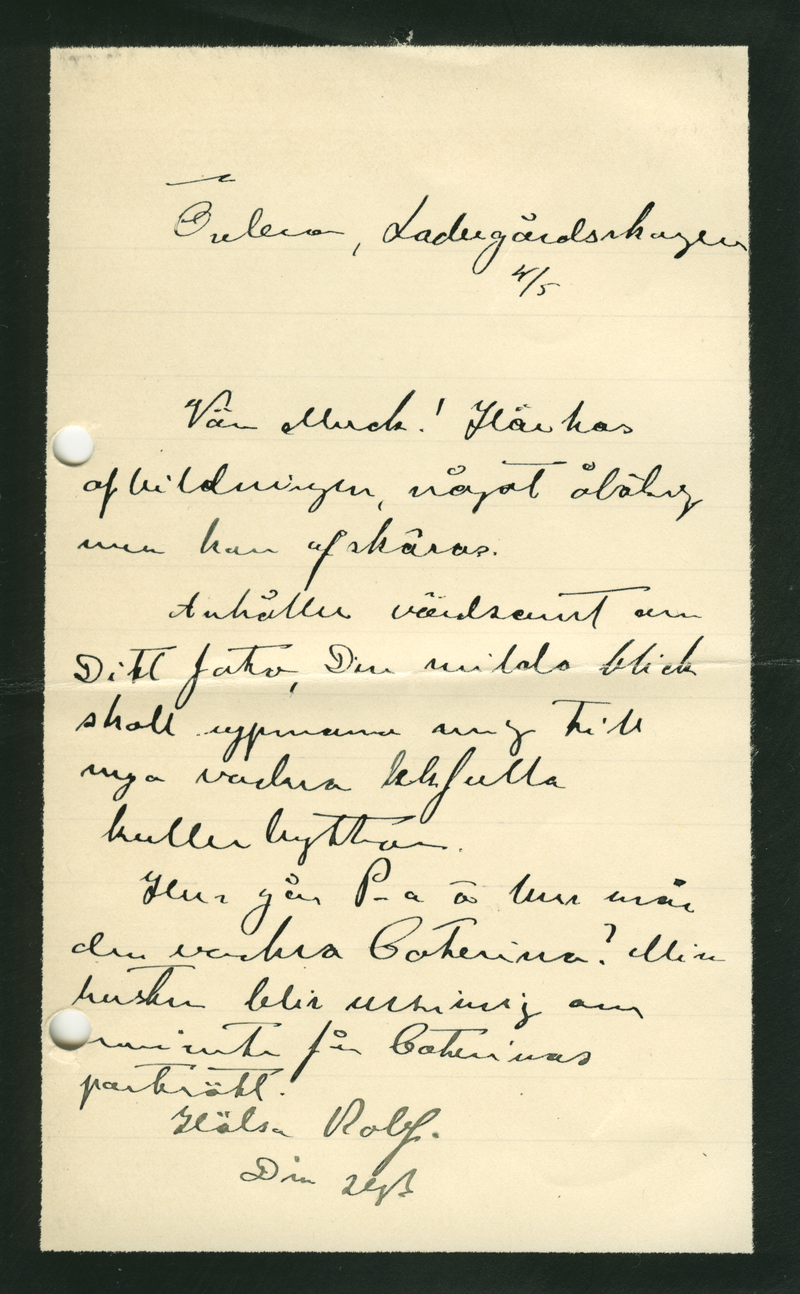 Ladugårdshagen
4/5
Vän Muck! Här har
afbildningen, något åbäkig
men kan afskäras.
Anhåller vördsamt om
Ditt foto, Din milda blick
skall uppmana mig till
nya vackra
kullerbyttor.
Hur går P-a o hur mår
den vackra Caterina? Min
hustru blir ursinnig om
inte får Caterinas
porträtt.
Hälsa Rolf.
Din